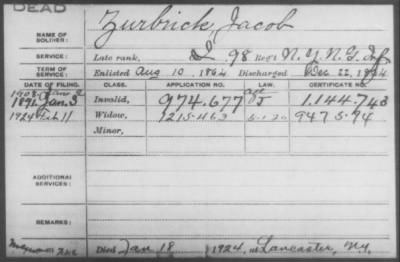 DEAD
NAME OF SOLDIER: Zurbrick, Jacob
SERVICE: Late rank, I. 98 Reg't N.Y.N.G. Inf
TERM OF SERVICE: Enlisted Aug 10, 1864 Discharged Dec 22, 1864
DATE OF FILING. CLASS. APPLICATION NO. LAW. CERTIFICATE NO.
1891 Jan. 3 Invalid, 974.677 J 1.144.743
1924 Feb 11 Widow, 1215463 947594
Minor,
ADDITIONAL SERVICES:
REMARKS:
Died Jan 18, 1924, at Lancaster, N.Y.